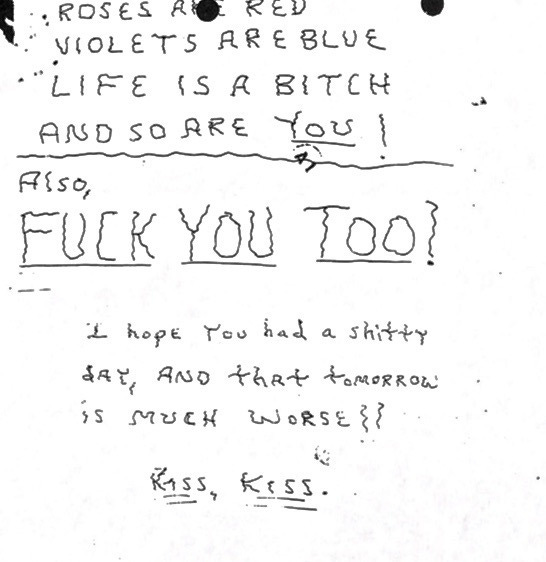 ROSES ARE RED
VIOLETS ARE BLUE
LIFE IS A BITCH
AND SO ARE YOU!
Also,
FUCK YOU TOO!
I hope You had a shitty
dAY, AND that tomorrow
is MUCH WORSE!!
Kiss, Kiss.